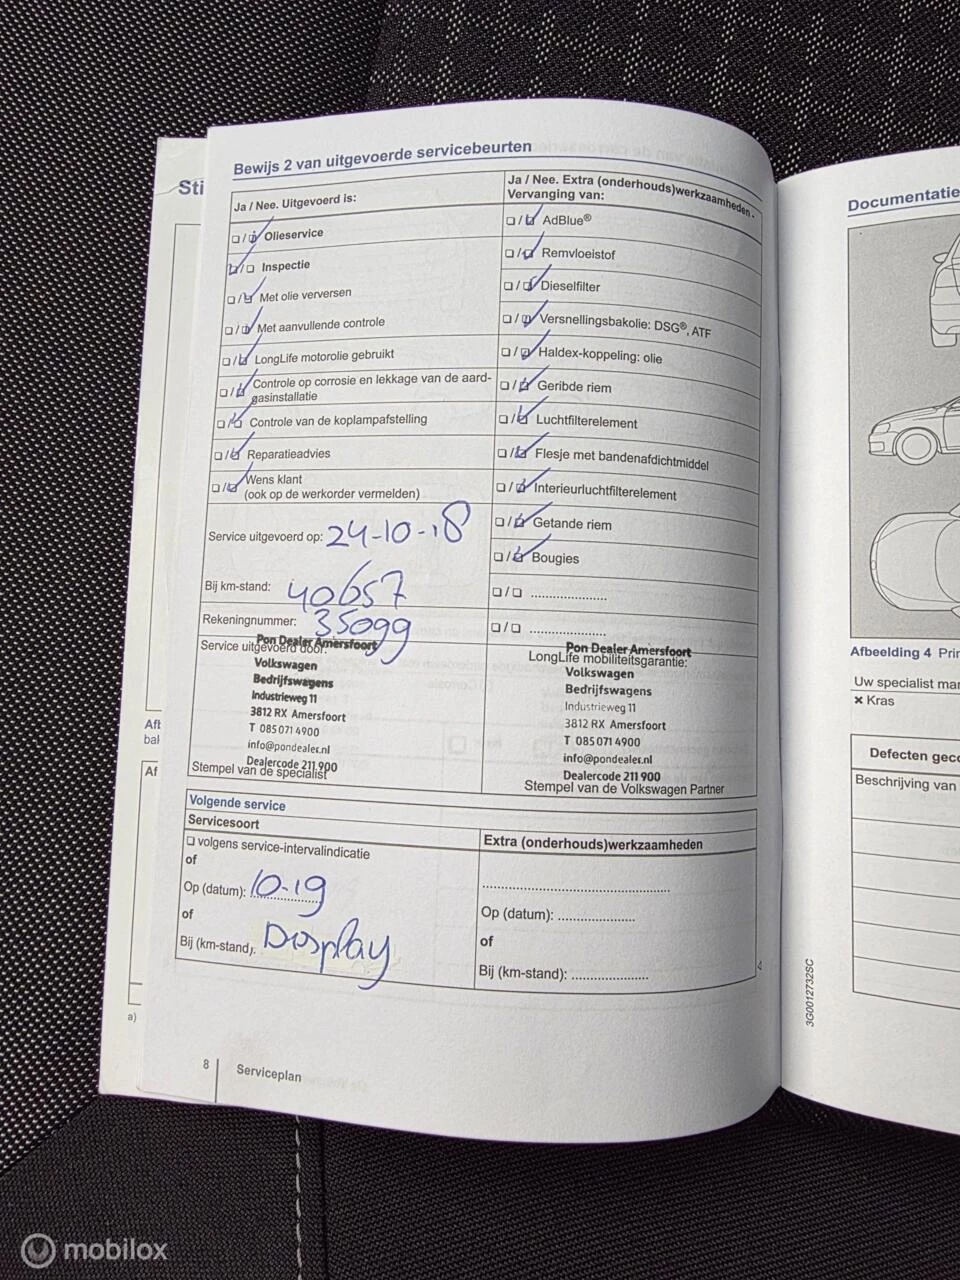 Bewijs 2 van uitgevoerde servicebeurten
Ja / Nee. Uitgevoerd is:
Olieservice
Inspectie
Met olie verversen
Met aanvullende controle
LongLife motorolie gebruikt
Controle op corrosie en lekkage van de aard-
gasinstallatie
Controle van de koplampafstelling
Reparatieadvies
Wens klant
(ook op de werkorder vermelden)
Service uitgevoerd op: 24-10-18
Bij km-stand: 40657
Rekeningnummer: 35099
Service uitgevoerd door:
Pon Dealer Amersfoort
Volkswagen
Bedrijfswagens
Industrieweg 11
3812 RX Amersfoort
T 085 071 4900
info@pondealer.nl
Dealercode 211 900
Stempel van de specialist
Ja / Nee. Extra (onderhouds)werkzaamheden -
Vervanging van:
AdBlue®
Remvloeistof
Dieselfilter
Versnellingsbakolie: DSG®, ATF
Haldex-koppeling: olie
Geribde riem
Luchtfilterelement
Flesje met bandenafdichtmiddel
Interieurluchtfilterelement
Getande riem
Bougies
Pon Dealer Amersfoort
LongLife mobiliteitsgarantie:
Volkswagen
Bedrijfswagens
Industrieweg 11
3812 RX Amersfoort
T 085 071 4900
info@pondealer.nl
Dealercode 211 900
Stempel van de Volkswagen Partner
Volgende service
Servicesoort
volgens service-intervalindicatie
of
Op (datum): 10-19
of
Bij (km-stand): Display
Extra (onderhouds)werkzaamheden
Op (datum):
of
Bij (km-stand):
8 Serviceplan
Sti
Af
a)
Documentatie
3G0012732SC
Afbeelding 4 Prin
Uw specialist mar
× Kras
Defecten geco
Beschrijving van
mobilox